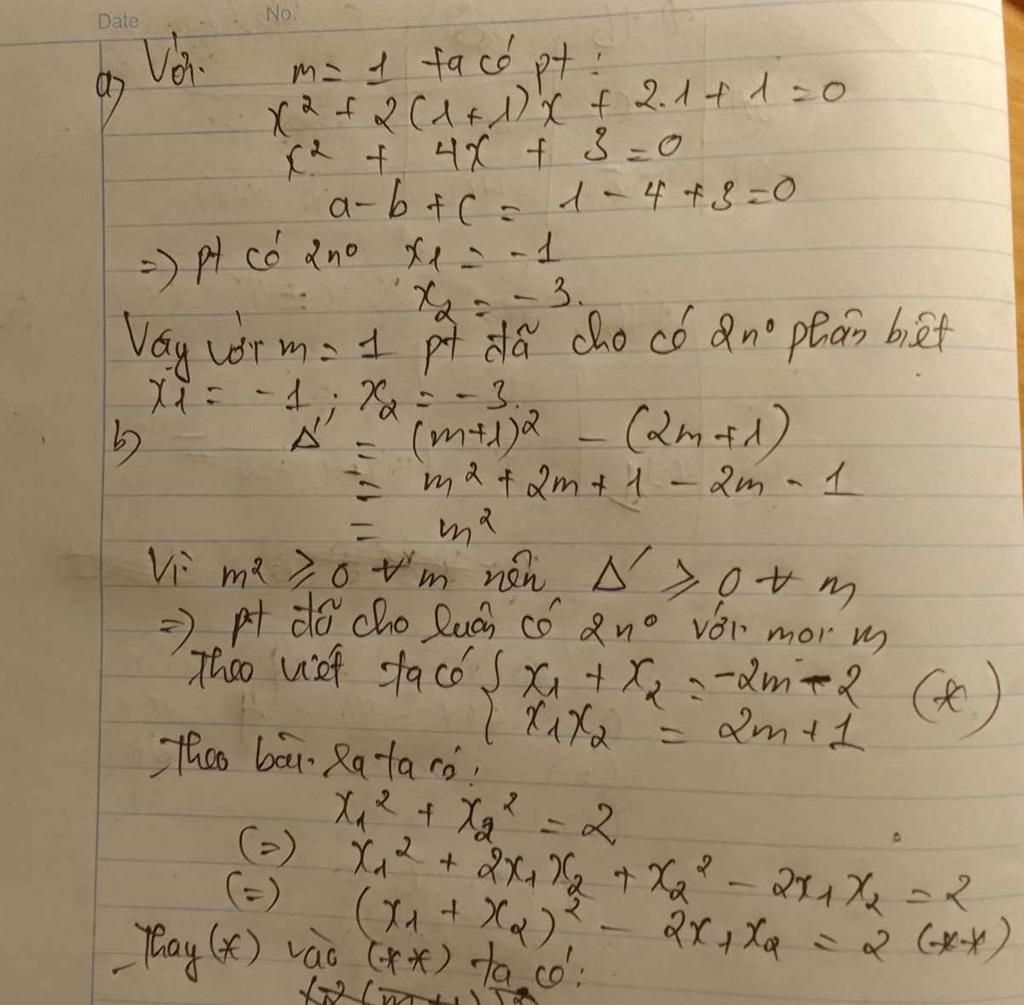 Date No.
a) Với m = 1 ta có pt :
x² + 2(1+1)x + 2.1 + 1 = 0
x² + 4x + 3 = 0
a - b + c = 1 - 4 + 3 = 0
=> pt có 2 nº x1 = -1
x2 = -3.
Vậy với m = 1 pt đã cho có 2nº phân biệt
x1 = -1 ; x2 = -3.
b) Δ' = (m+1)² - (2m+1)
= m² + 2m + 1 - 2m - 1
= m²
Vì m² ≥ 0 ∀ m nên Δ' ≥ 0 ∀ m
=> pt đã cho luôn có 2 nº với mọi m
Theo viét ta có { x1 + x2 = -2m - 2 (*)
{ x1x2 = 2m + 1
Theo bài ra ta có:
x1² + x2² = 2
(=) x1² + 2x1x2 + x2² - 2x1x2 = 2
(=) (x1 + x2)² - 2x1x2 = 2 (**)
Thay (*) vào (**) ta có: